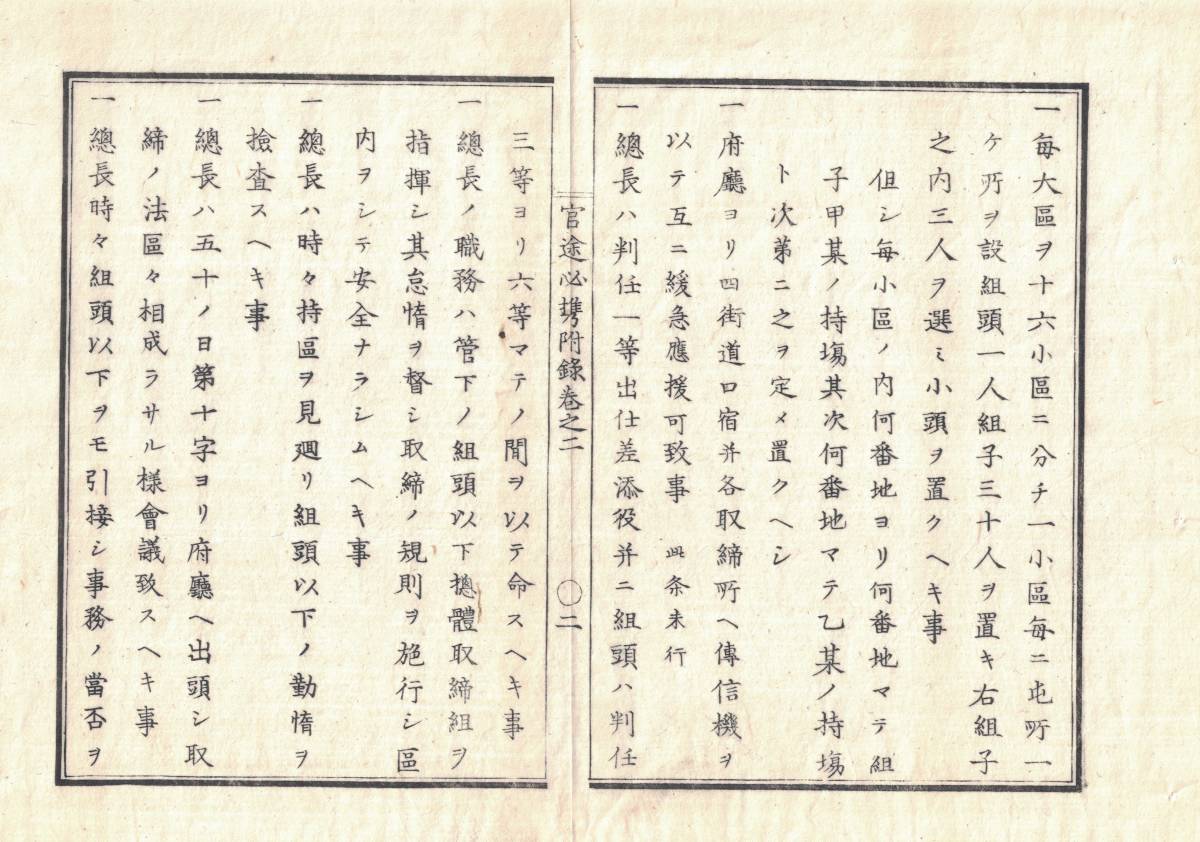 一每大區ヲ十六小區ニ分チ一小區每ニ屯所一
ケ所ヲ設組頭一人組子三十人ヲ置キ右組子
之内三人ヲ選ミ小頭ヲ置クヘキ事
但シ每小區ノ内何番地ヨリ何番地マテ組
子甲某ノ持塲其次何番地マテ乙某ノ持塲
ト次第ニ之ヲ定メ置クヘシ
一府廳ヨリ四街道口宿并各取締所ヘ傳信機ヲ
以テ互ニ緩急應援可致事 此条未行
一總長ハ判任一等出仕差添役并ニ組頭ハ判任
官途必携附錄卷之二 〇二
三等ヨリ六等マテノ間ヲ以テ命スヘキ事
一總長ノ職務ハ管下ノ組頭以下摠體取締組ヲ
指揮シ其怠惰ヲ督シ取締ノ規則ヲ施行シ區
内ヲシテ安全ナラシムヘキ事
一總長ハ時々持區ヲ見廻リ組頭以下ノ勤惰ヲ
撿査スヘキ事
一總長ハ五十ノ日第十字ヨリ府廳ヘ出頭シ取
締ノ法區々相成ラサル樣會議致スヘキ事
一總長時々組頭以下ヲモ引接シ事務ノ當否ヲ